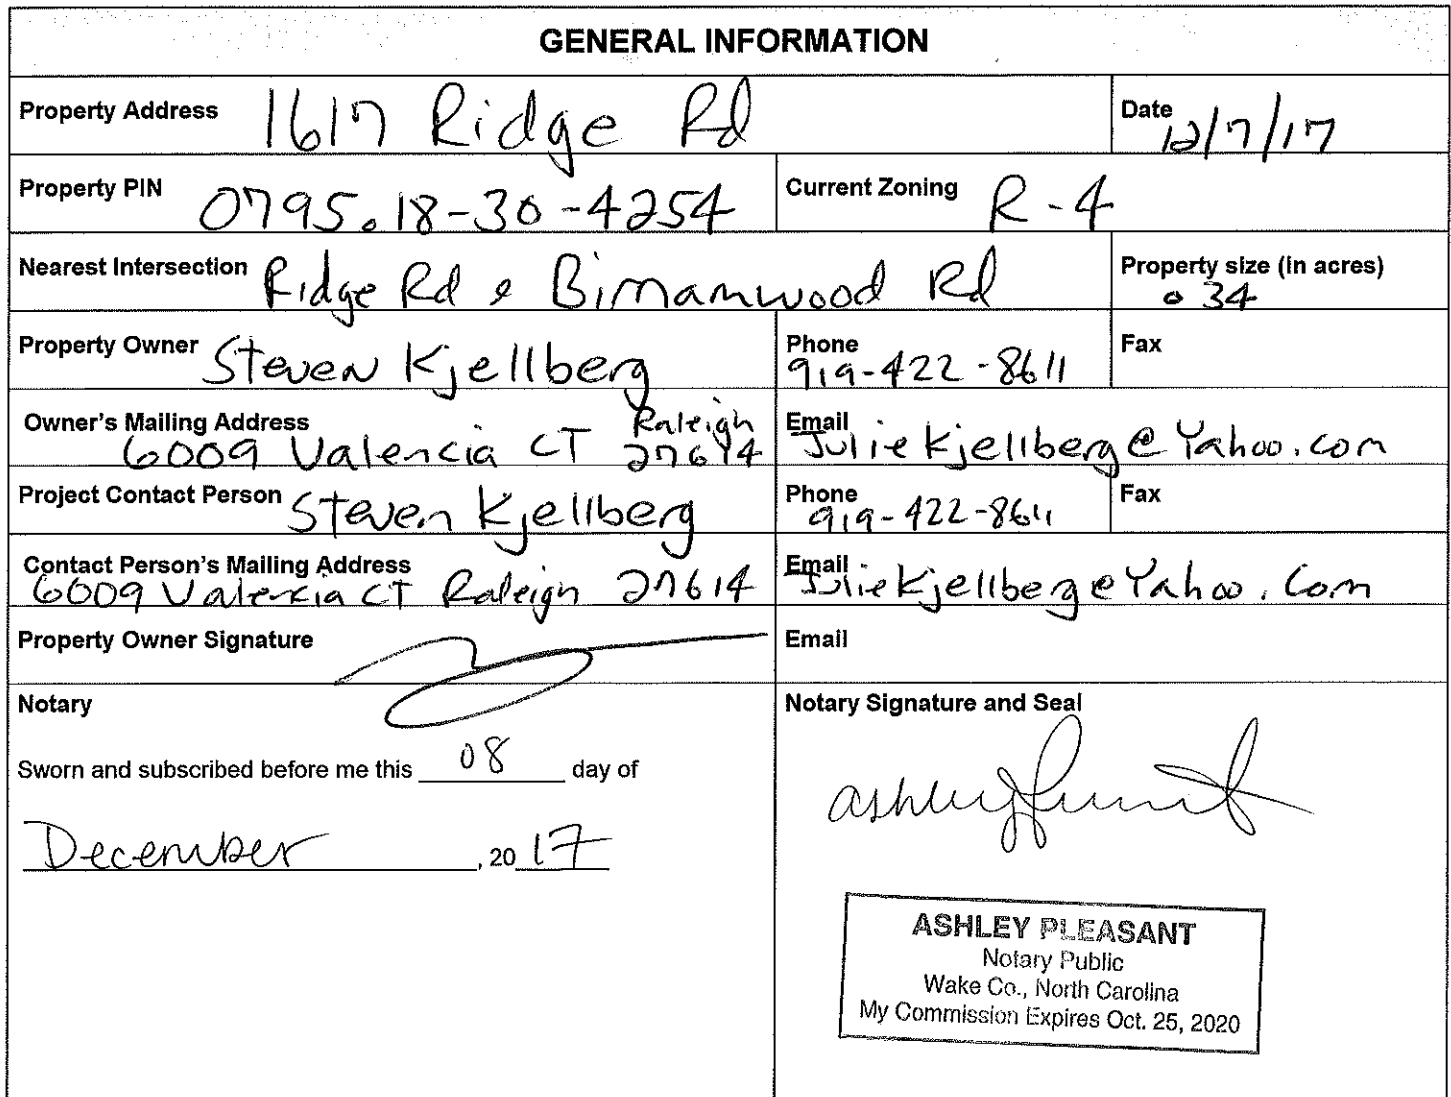 GENERAL INFORMATION
Property Address 1617 Ridge Rd
Date 12/7/17
Property PIN 0795.18-30-4254
Current Zoning R-4
Nearest Intersection Ridge Rd & Birnamwood Rd
Property size (in acres) .34
Property Owner Steven Kjellberg
Phone 919-422-8611
Fax
Owner's Mailing Address 6009 Valencia CT Raleigh 27614
Email JulieKjellberg@Yahoo.com
Project Contact Person Steven Kjellberg
Phone 919-422-8611
Fax
Contact Person's Mailing Address
6009 Valencia CT Raleigh 27614
Email JulieKjellberg@Yahoo.Com
Property Owner Signature
Email
Notary
Notary Signature and Seal
Sworn and subscribed before me this 08 day of
December, 20 17
ashley
ASHLEY PLEASANT
Notary Public
Wake Co., North Carolina
My Commission Expires Oct. 25, 2020